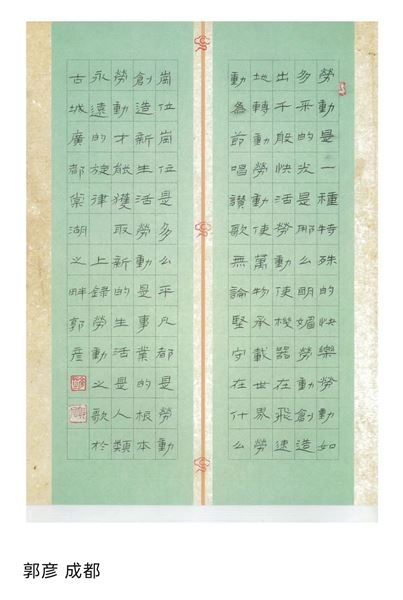 勞動是一種特殊的快樂勞動如
多采的光是那么明媚勞動創造
出千般快活勞動使機器在飛速
地轉動勞動使萬物承載世界勞
動為節唱讚歌無論堅守在什么
崗位崗位是多么平凡都是勞動
創造新生活勞動是事業的根本
勞動才能獲取新的生活是人類
永遠的旋律 上錄勞動之歌於
古城廣都棠湖之畔郭彥
郭彦 成都